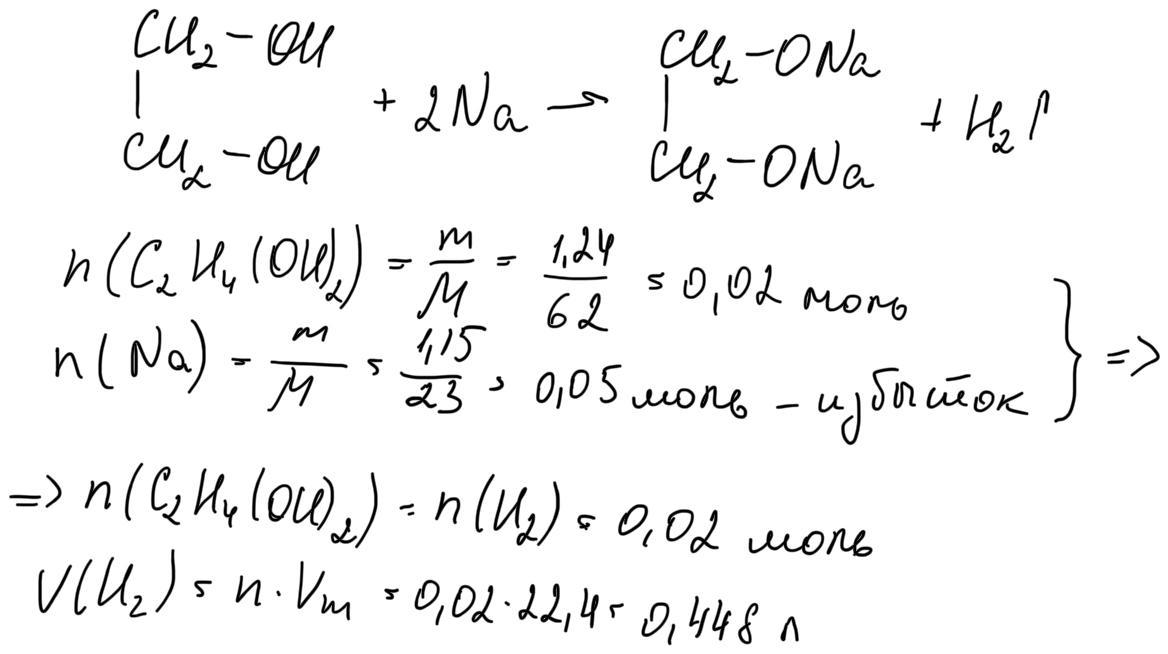 CH₂–OH CH₂–ONa
| + 2Na → | + H₂↑
CH₂–OH CH₂–ONa
n(C₂H₄(OH)₂) = m/M = 1,24/62 = 0,02 моль
n(Na) = m/M = 1,15/23 = 0,05 моль – избыток } =>
=> n(C₂H₄(OH)₂) = n(H₂) = 0,02 моль
V(H₂) = n·Vm = 0,02·22,4 = 0,448 л